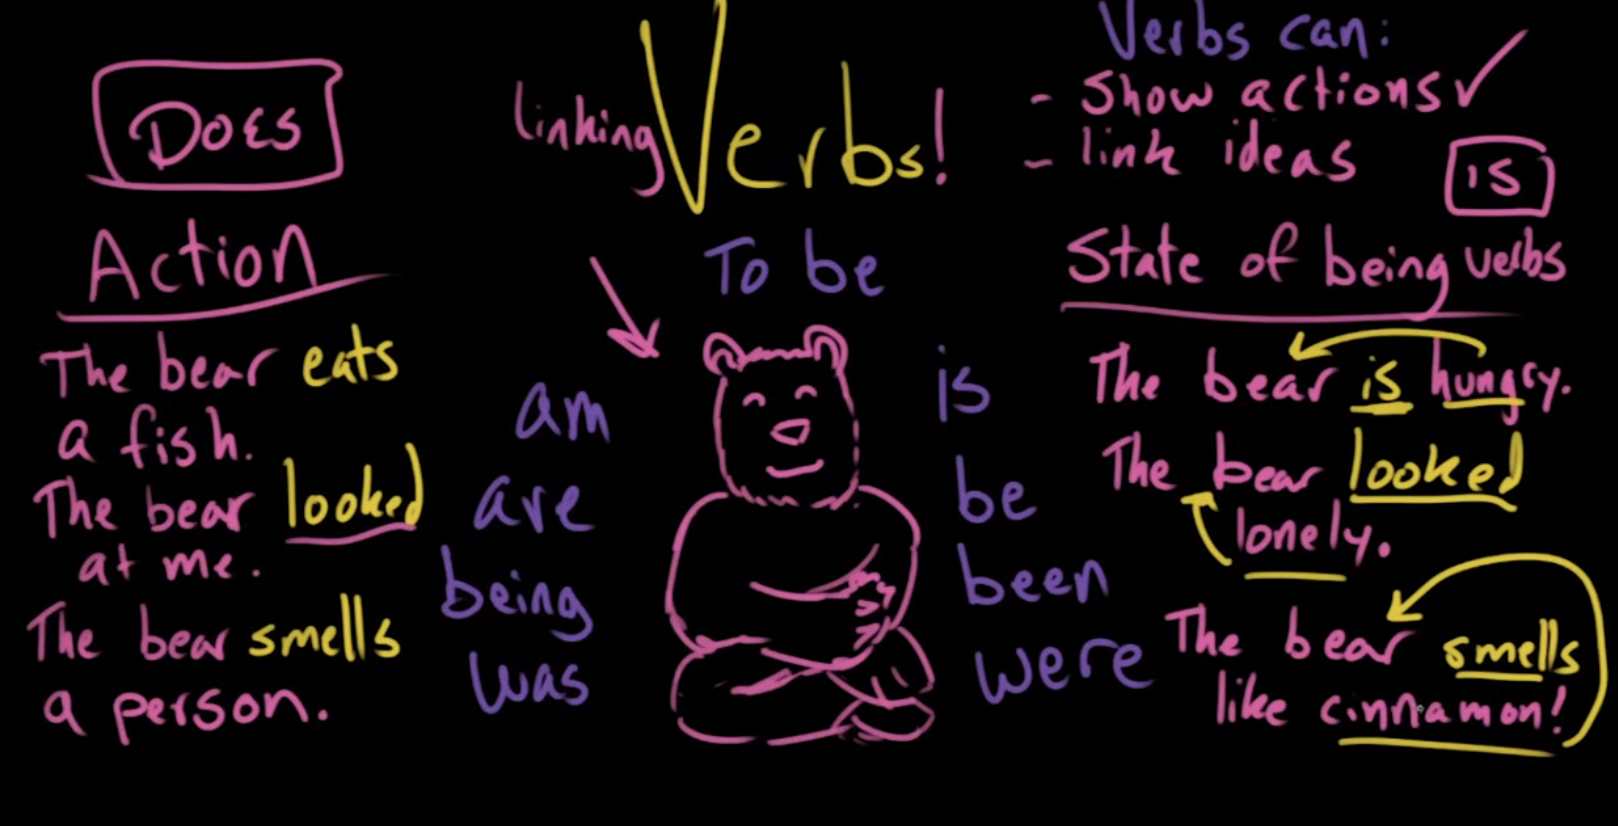 Does
Action
The bear eats
a fish.
The bear looked
at me.
The bear smells
a person.
linking Verbs!
To be
am
are
being
was
is
be
been
were
Verbs can:
- show actions ✓
- link ideas
is
State of being verbs
The bear is hungry.
The bear looked
lonely.
The bear smells
like cinnamon!